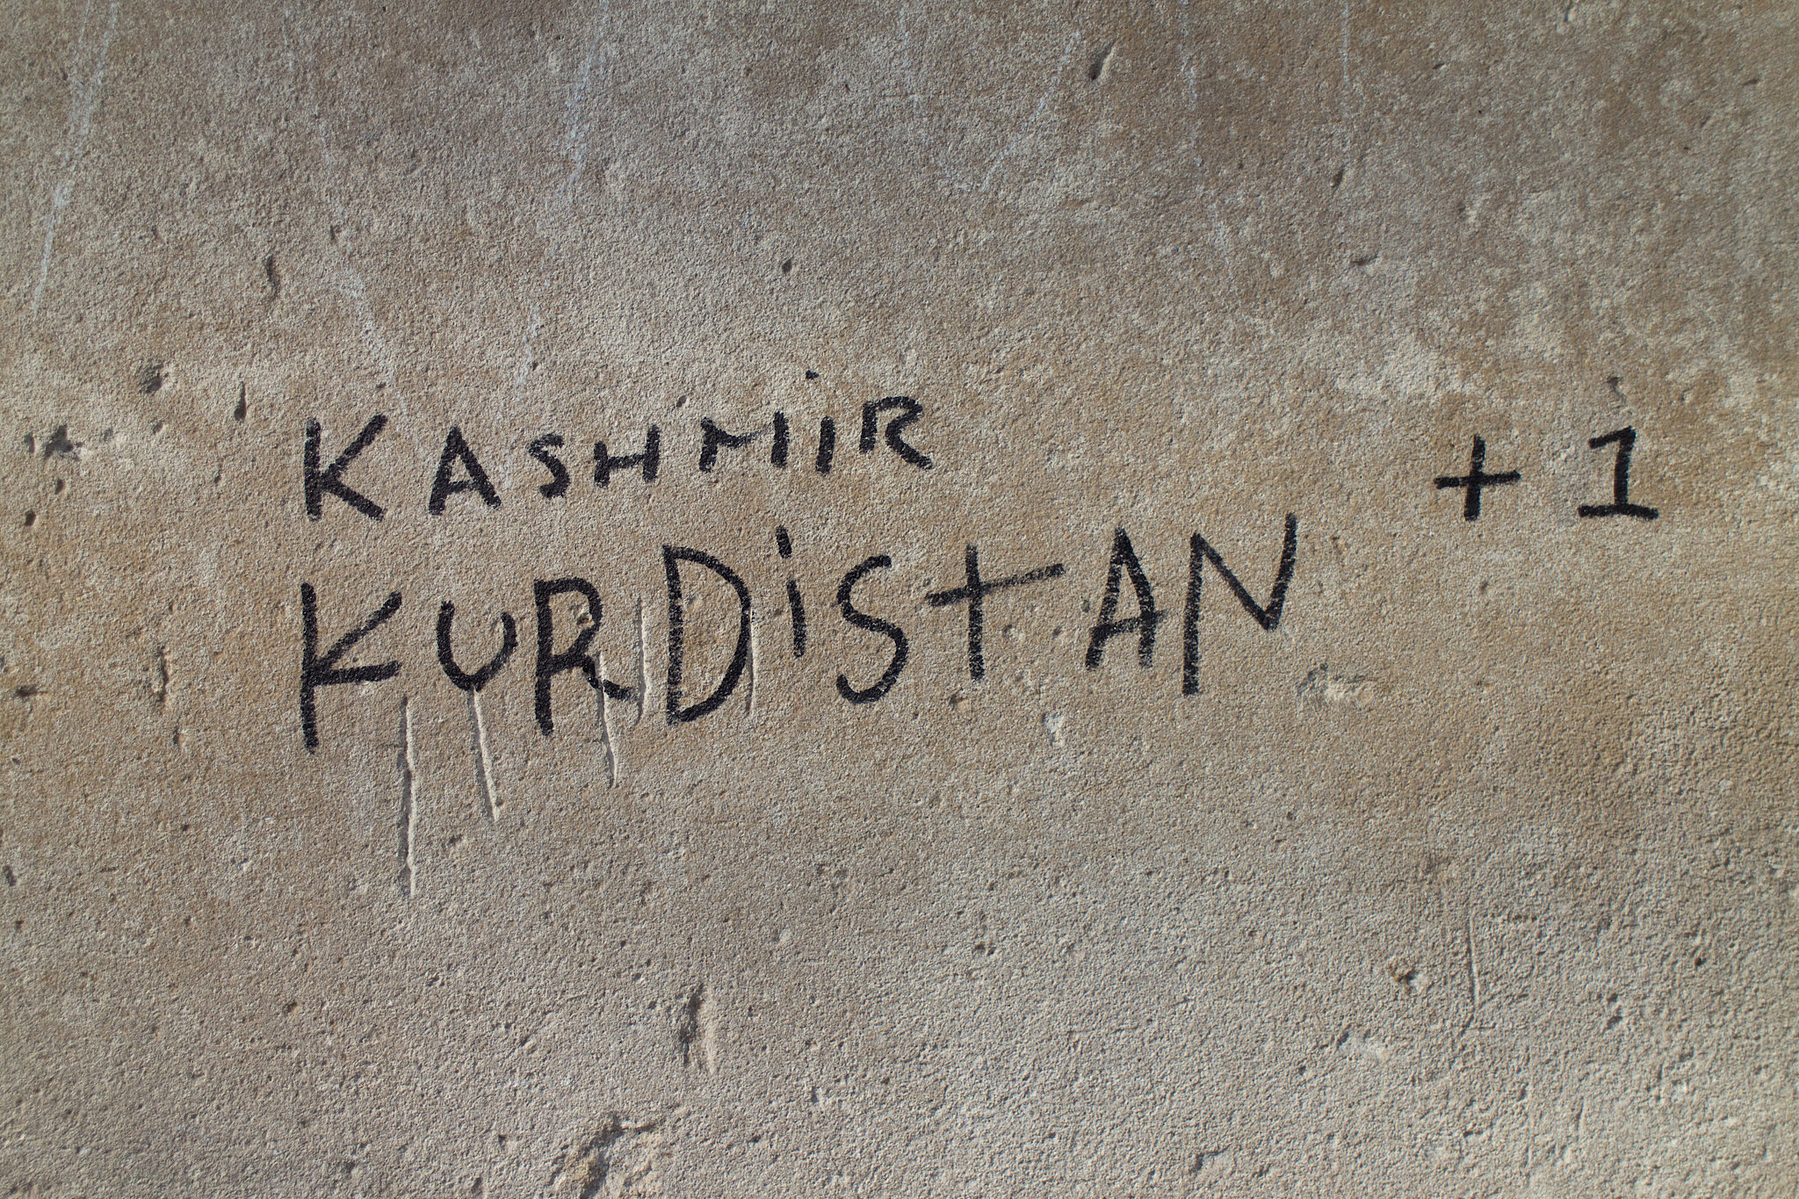 KASHMiR
KURDiStAN +1